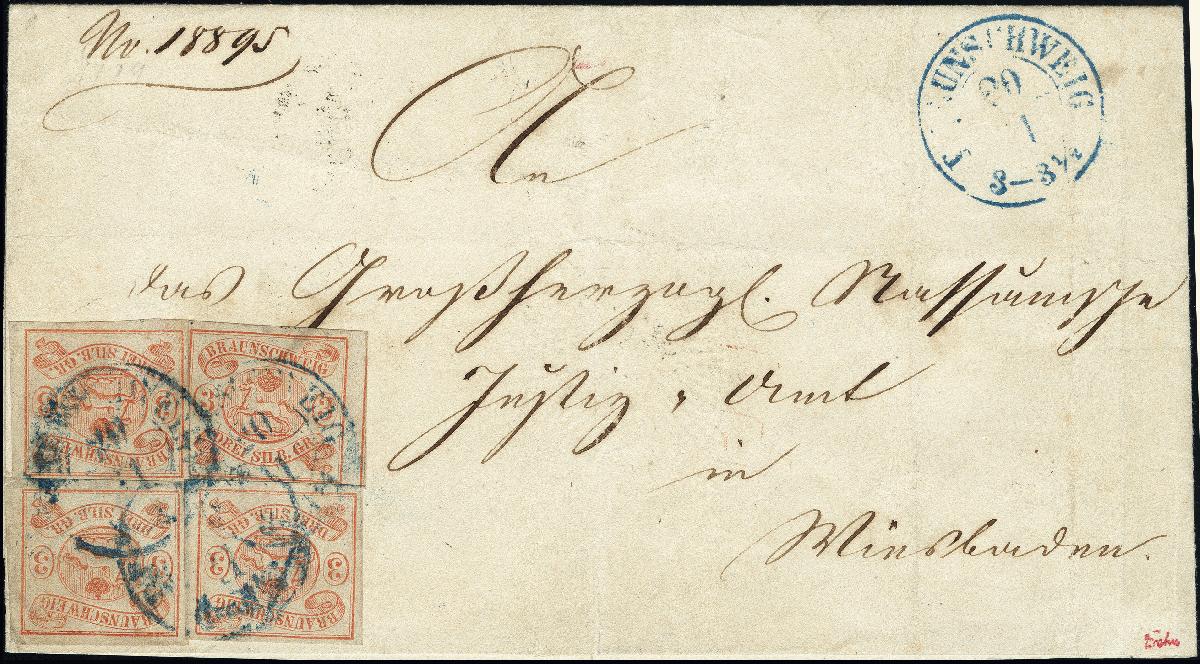 No. 18895
BRAUNSCHWEIG
20
1
8—8½
An
das Großherzogl. Nassauische
Justiz-Amt
in
Wiesbaden.
DREI SILB. GR.
3
3
BRAUNSCHWEIG
BRAUNSCHWEIG
3
DREI SILB. GR.
DREI SILB. GR.
3
3
BRAUNSCHWEIG
DREI SILB. GR.
3
3
BRAUNSCHWEIG